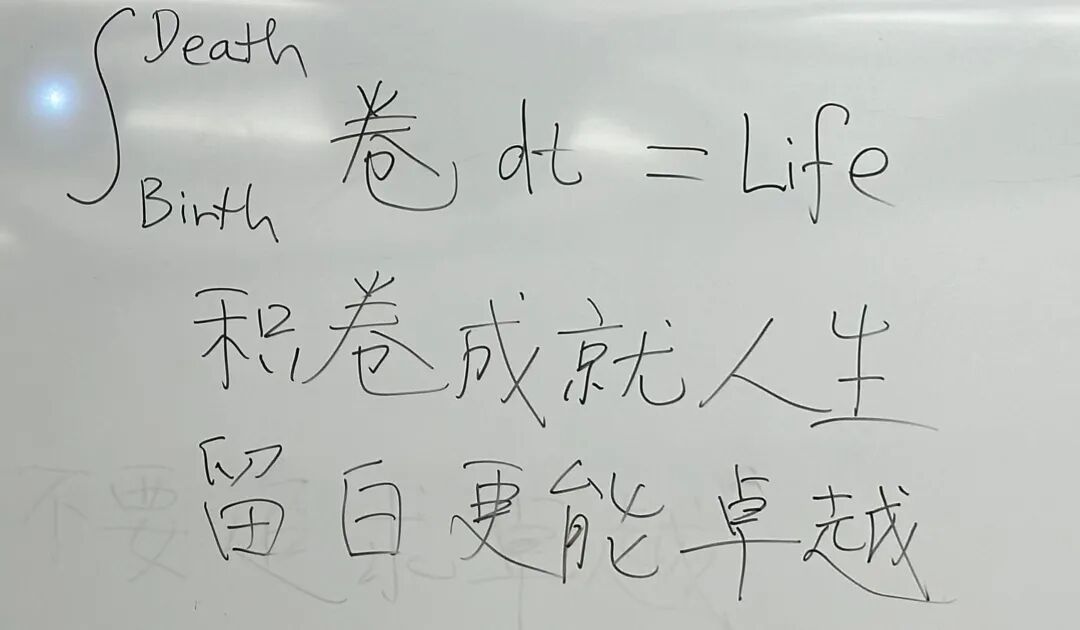 ∫ Death Birth 卷 dt = Life
积卷成就人生
留白更能卓越